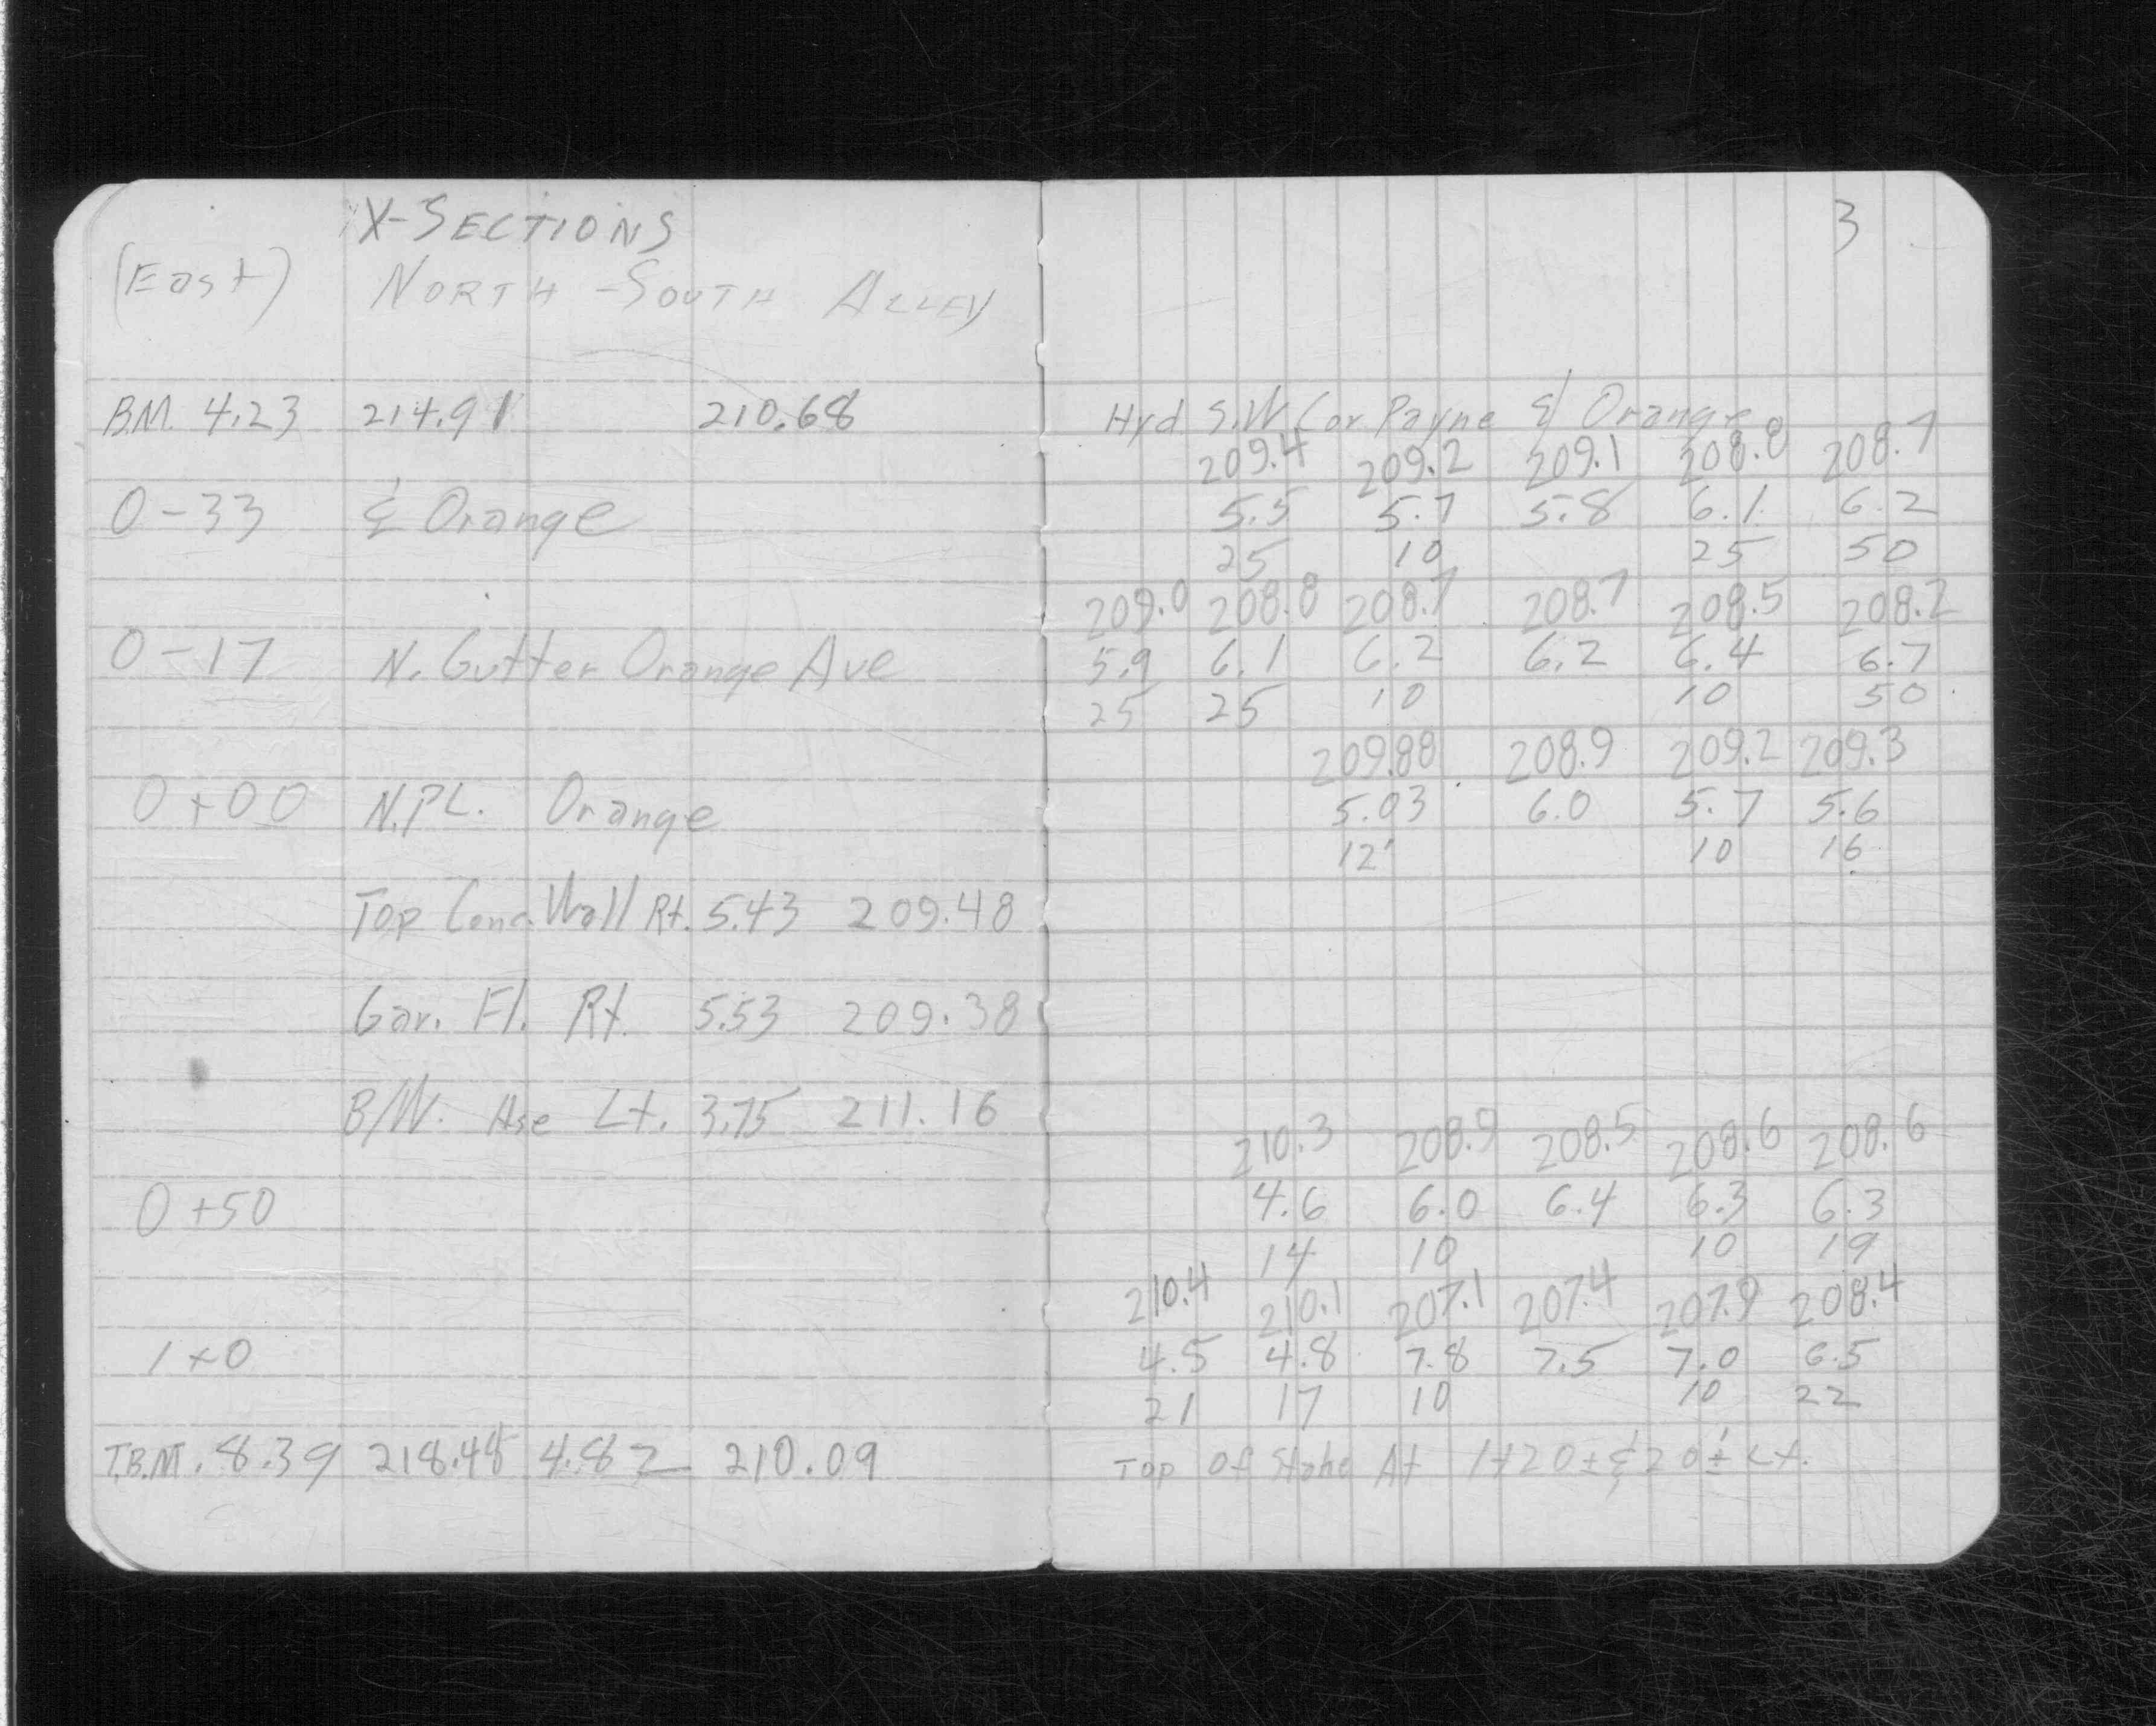 X-SECTIONS
(East) NORTH-SOUTH ALLEY
B.M. 4.23 214.91 210.68
0-33 ℄ Orange
0-17 N. Gutter Orange Ave
0+00 N.PL. Orange
Top Conc. Wall Rt. 5.43 209.48
Gar. Fl. Rt. 5.53 209.38
B/W. Hse Lt. 3.75 211.16
0+50
1+0
T.B.M. 8.39 218.48 4.82 210.09
3
Hyd S.W Cor Payne & Orange
209.4 209.2 209.1 208.8 208.7
5.5 5.7 5.8 6.1 6.2
25 10 25 50
209.0 208.8 208.7 208.7 208.5 208.2
5.9 6.1 6.2 6.2 6.4 6.7
25 25 10 10 50
209.88 208.9 209.2 209.3
5.03 6.0 5.7 5.6
12' 10 16
210.3 208.9 208.5 208.6 208.6
4.6 6.0 6.4 6.3 6.3
14 10 10 19
210.4 210.1 207.1 207.4 207.9 208.4
4.5 4.8 7.8 7.5 7.0 6.5
21 17 10 10 22
Top Of Stake At 1+20± & 20'± Lt.